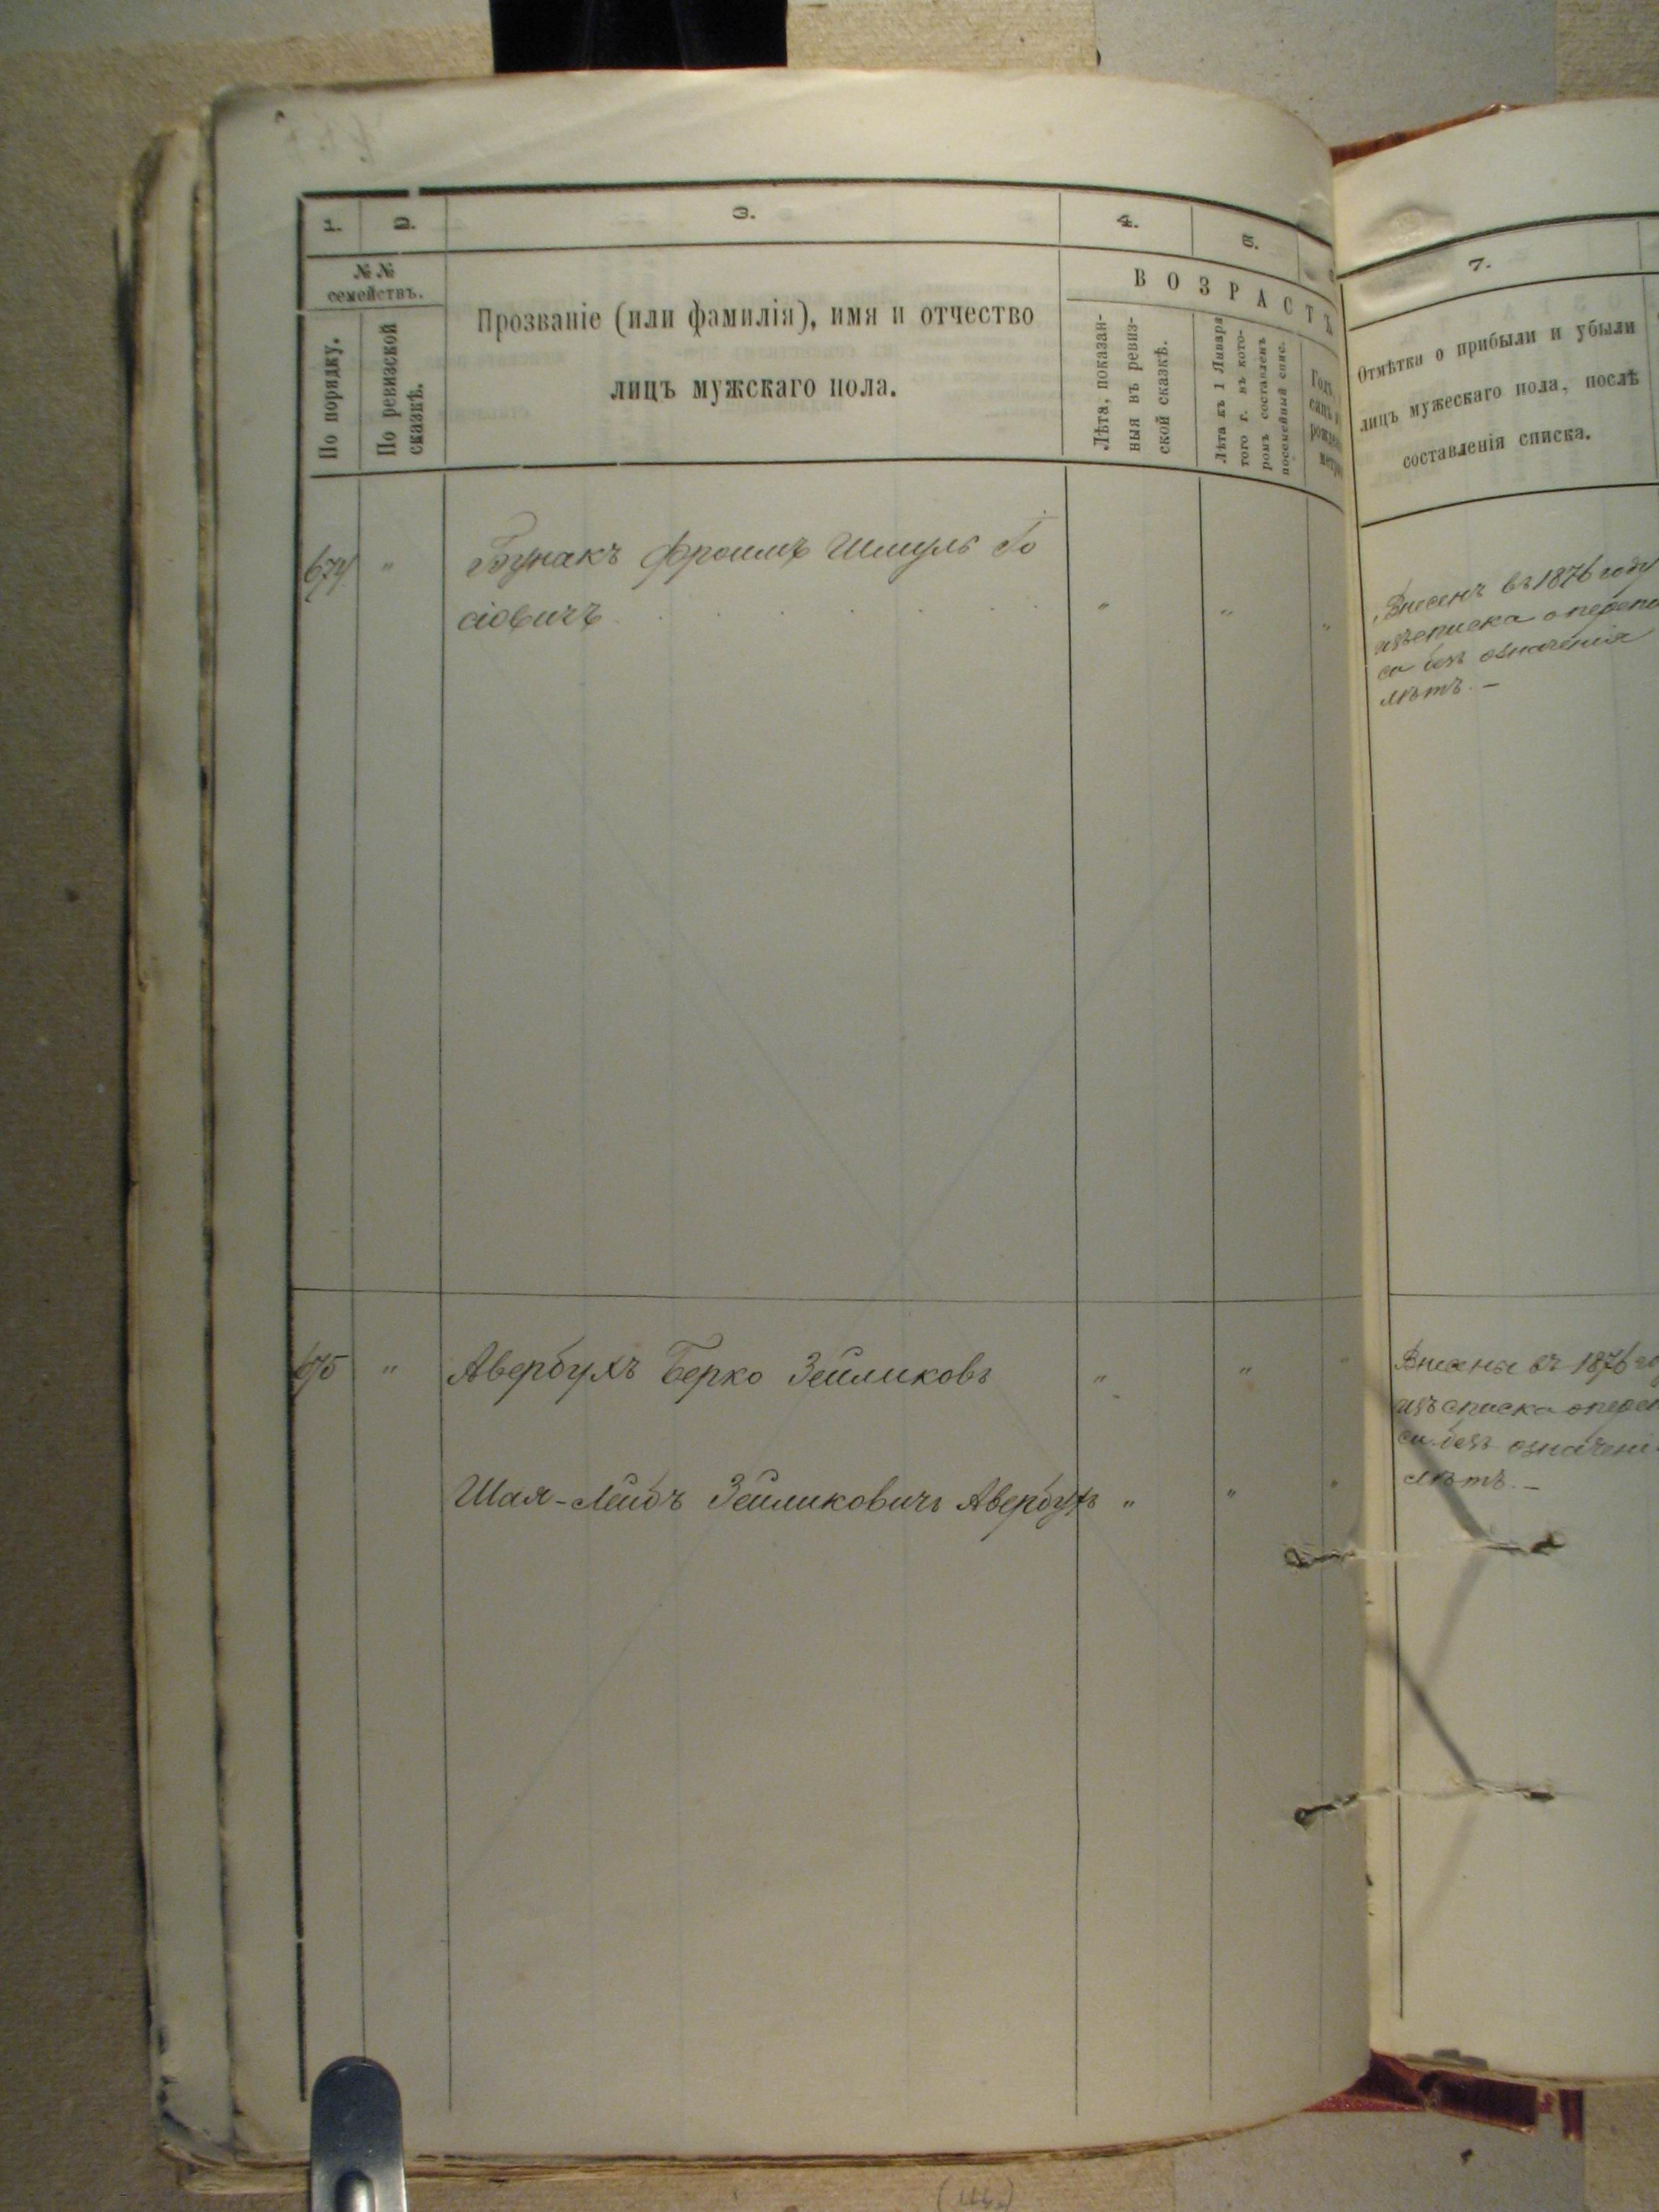 1.
2.
3.
4.
5.
7.
№№
семействъ.
По порядку.
По ревизской
сказкѣ.
Прозваніе (или фамилія), имя и отчество
лицъ мужскаго пола.
ВОЗРАСТЪ
Лѣта, показан-
ныя въ ревиз-
ской сказкѣ.
Лѣта къ 1 Января
того г. въ кото-
ромъ составленъ
посемейный спис.
Отмѣтка о прибыли и убыли
лицъ мужескаго пола, послѣ
составленія списка.
674 " Бунакъ Фроимъ Шмуль Іо
сіовичъ . . . . . . " " "
Внесенъ въ 1876 году
изъ списка о перепи
си безъ означенія
лѣтъ. —
675 " Авербухъ Берко Зейликовъ " " "
Шая-Лейбъ Зейликовичъ Авербухъ " " "
Внесены въ 1876 го
изъ списка о переп
си безъ означені
лѣтъ. —